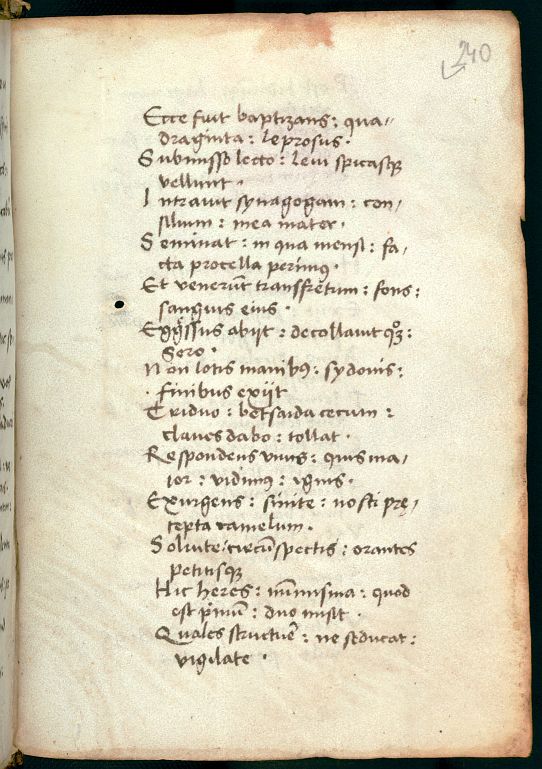 240
Ecce fuit baptizans: qua/
draginta: leprosus.
Submisso lecto: levi spicasqꝫ
vellunt.
Intravit synagogam: con/
silium: mea mater.
Seminat: in qua mensi: fa/
cta procella perimꝰ.
Et venerūt transfretum: fons:
sanguis eius.
abijt: decollavit
Sero.
Non lotis manibꝰ: sydonis:
. finibus exijt
Triduo: betsaida cecum:
claves dabo: tollat.
Respondens unus: quis ma/
ior: vidimꝰ: ignis.
Exurgens: sinite: nosti pre/
cepta camelum.
Solvite: circūspectis: orantes
petitisqꝫ
Hic heres: numisma: quod
est pͥmū: duo misit.
Quales structuꝛe: ne seducat:
vigilate.